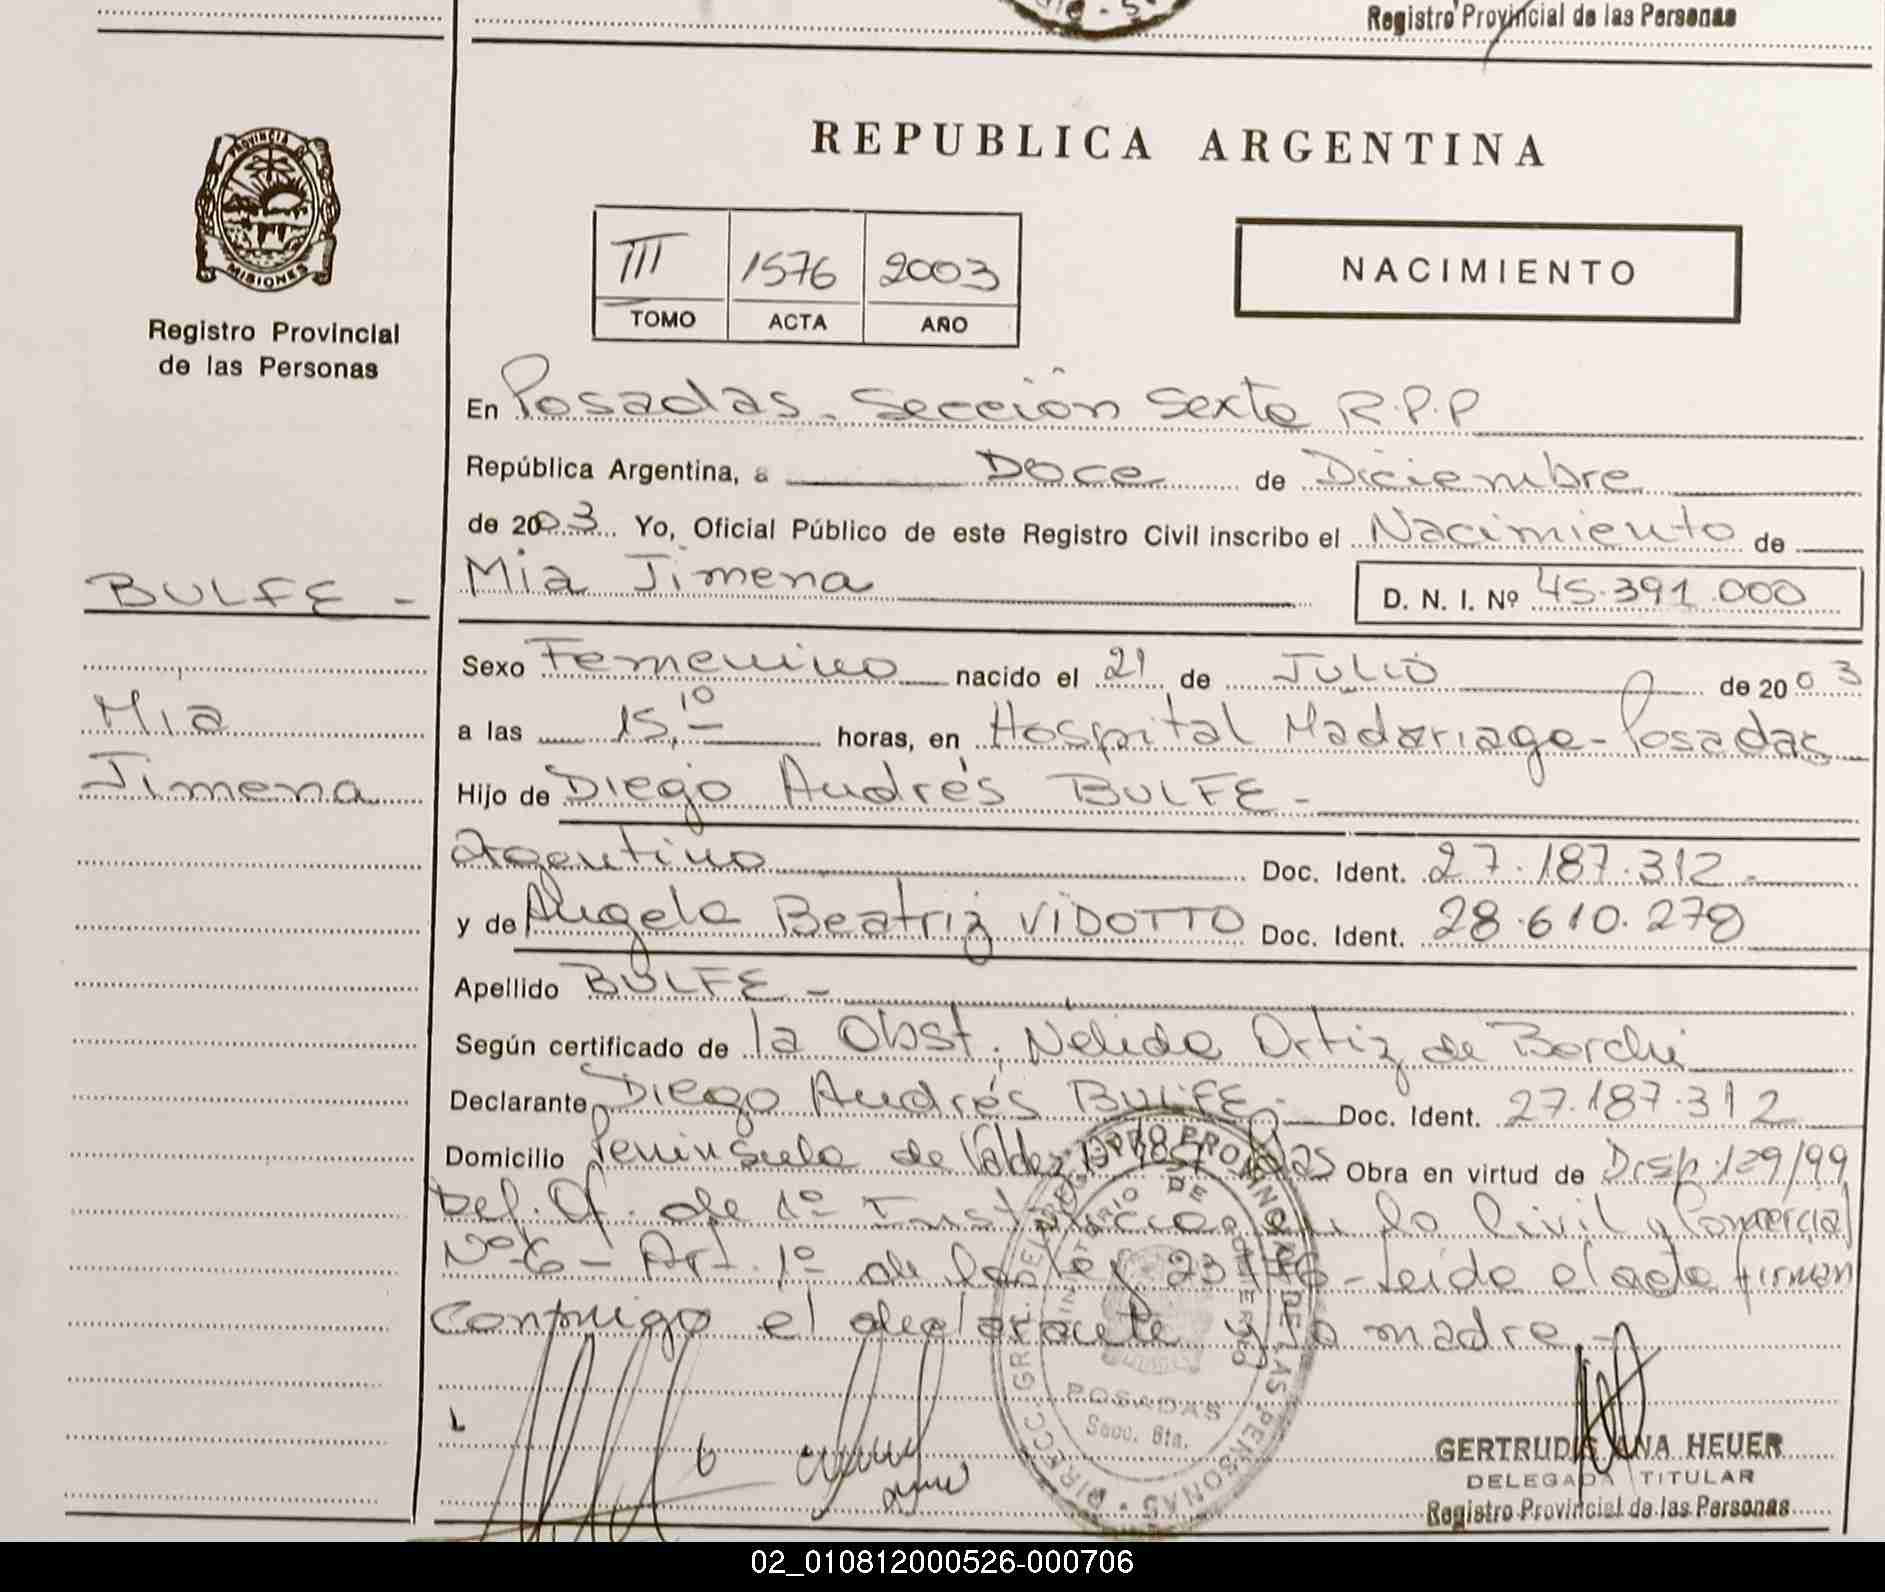 Registro Provincial de las Personas
PROVINCIA DE
MISIONES
Registro Provincial
de las Personas
REPUBLICA ARGENTINA
III 1576 2003
TOMO ACTA AÑO
NACIMIENTO
En Posadas - Sección Sexta R.P.P
República Argentina, a Doce de Diciembre
de 2003. Yo, Oficial Público de este Registro Civil inscribo el Nacimiento de
BULFE -
Mia Jimena D. N. I. Nº 45.391.000
Sexo Femenino nacido el 21 de Julio de 2003
Mia
a las 15,10 horas, en Hospital Madariaga - Posadas
Jimena
Hijo de Diego Andrés BULFE -
Argentino Doc. Ident. 27.187.312 -
y de Angela Beatriz VIDOTTO Doc. Ident. 28.610.278
Apellido BULFE -
Según certificado de la Obst. Nelida Ortiz de Borchi
Declarante Diego Andrés BULFE - Doc. Ident. 27.187.312
Domicilio Peninsula de Valdez Obra en virtud de Disp. 129/99
Def. Of. de 1º Instrucción en lo Civil y Comercial
Nº 6 - Art. 1º de la Ley 23 - Leida el acta firman
conmigo el declarante y la madre -
DIRECC. GRAL. DEL REG. PROVINCIAL DE LAS PERSONAS
MINISTERIO DE GOBIERNO
POSADAS
Secc. 6ta.
GERTRUDIS ANA HEUER
DELEGADA TITULAR
Registro Provincial de las Personas
02_010812000526-000706